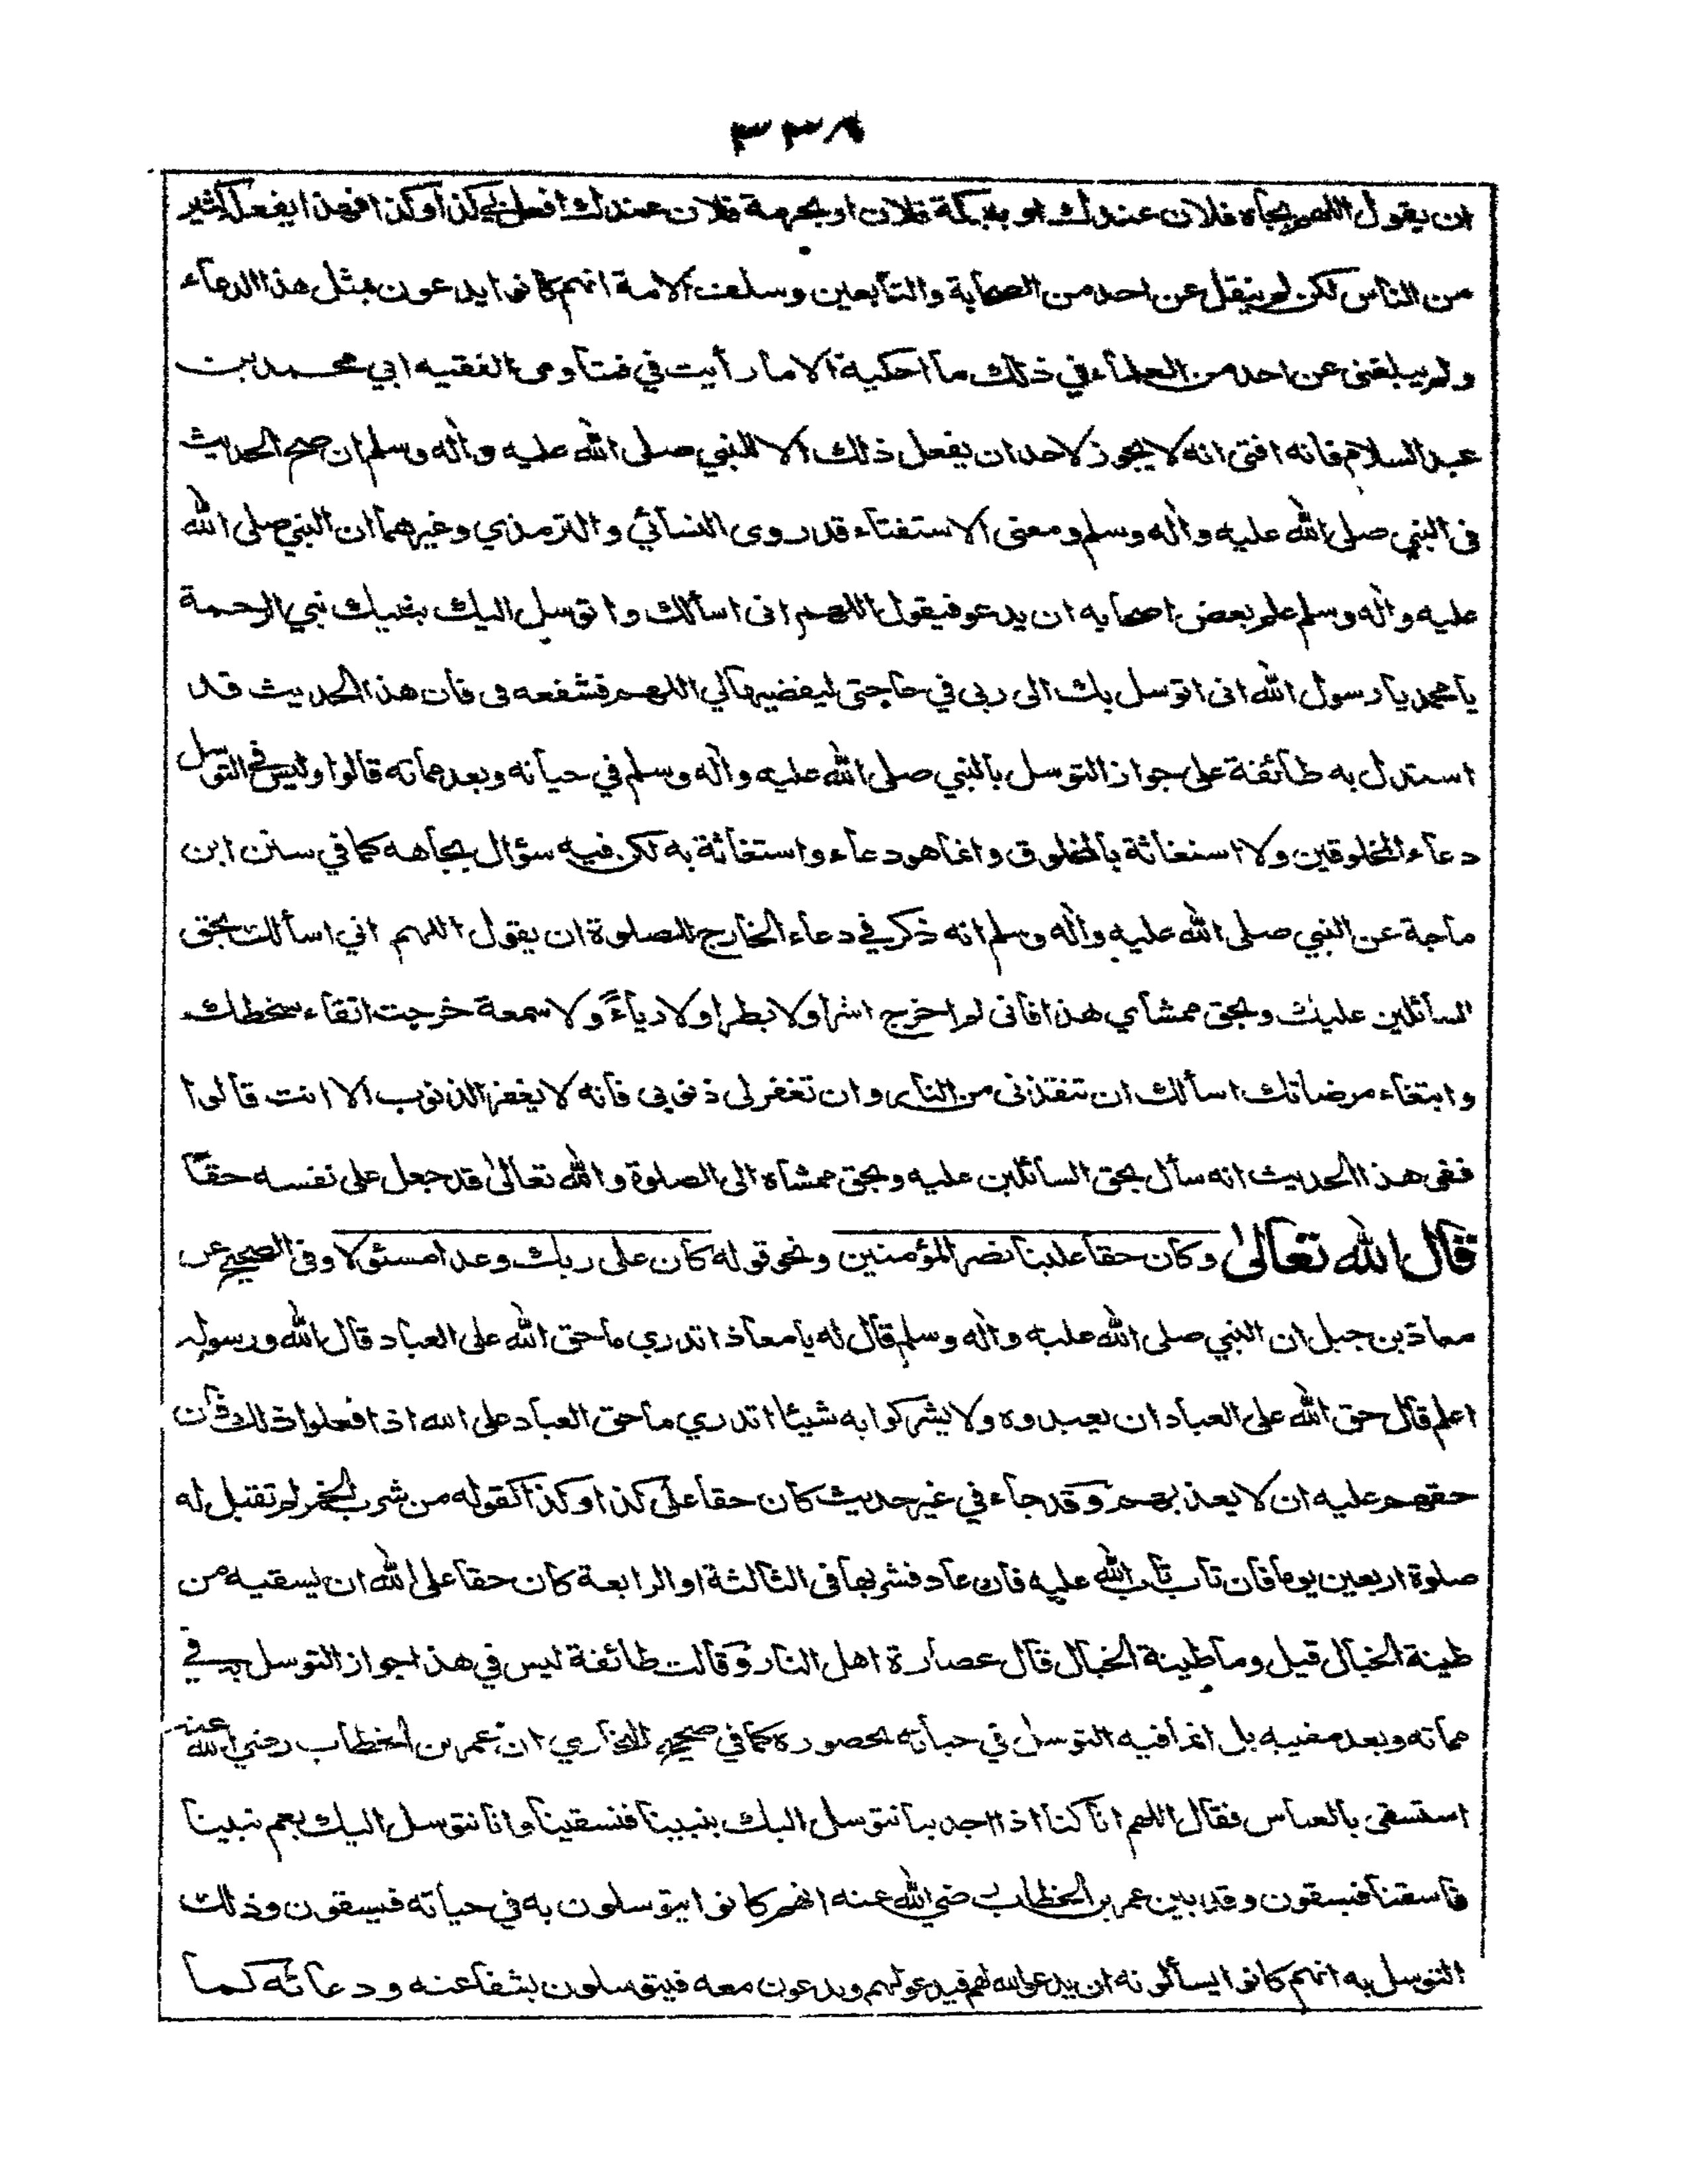 ٣٣٨
ان يقول اللهم بجاه فلان عندك او ببركة فلان او بحرمة فلان عندك افعل لي كذا وكذا فهذا يفعله كثير
من الناس لكن لم ينقل عن احد من الصحابة والتابعين وسلف الامة انهم كانوا يدعون بمثل هذا الدعاء
ولم يبلغنى عن احد من العلماء في ذلك ما احكية الا ما رأيت في فتاوى الفقيه ابي محمد بن
عبد السلام فانه افتى انه لا يجوز لاحد ان يفعل ذلك الا للنبي صلى الله عليه واله وسلم ان صح الحديث
فى النبي صلى الله عليه واله وسلم ومعنى الاستفتاء قد روى النسائي والترمذي وغيرهما ان النبي صلى الله
عليه واله وسلم علم بعض اصحابه ان يدعو فيقول اللهم انى اسألك واتوسل اليك بنبيك نبي الرحمة
يا محمد يا رسول الله انى اتوسل بك الى ربى في حاجتى ليقضيها لي اللهم فشفعه فى فان هذا الحديث قد
استدل به طائفة على جواز التوسل بالنبي صلى الله عليه واله وسلم في حياته وبعد مماته قالوا وليس في التوسل
دعاء المخلوقين ولا استغاثة بالمخلوق وانما هو دعاء واستغاثة به لكن فيه سؤال بجاهه كما في سنن ابن
ماجة عن النبي صلى الله عليه واله وسلم انه ذكر في دعاء الخارج للصلوة ان يقول اللهم اني اسألك بحق
السائلين عليك وبحق ممشاي هذا فانى لم اخرج اشرا ولا بطرا ولا رياءً ولا سمعة خرجت اتقاء سخطك
وابتغاء مرضاتك اسألك ان تنقذنى من النار وان تغفر لى ذنوبى فانه لا يغفر الذنوب الا انت قالوا
ففى هذا الحديث انه سأل بحق السائلين عليه وبحق ممشاه الى الصلوة والله تعالىٰ قد جعل على نفسه حقا
قال الله تعالىٰ وكان حقا علينا نصر المؤمنين ونحو قوله كان على ربك وعدا مسئولا وفى الصحيح عن
معاذ بن جبل ان النبي صلى الله عليه واله وسلم قال له يا معاذ اتدري ما حق الله على العباد قال الله ورسوله
اعلم قال حق الله على العباد ان يعبدوه ولا يشركوا به شيئا اتدري ما حق العباد على الله اذا فعلوا ذلك فان
حقهم عليه ان لا يعذبهم وقد جاء في غير حديث كان حقا على كذا وكذا كقوله من شرب الخمر لم تقبل له
صلوة اربعين يوما فان تاب تاب الله عليه فان عاد فشربها فى الثالثة او الرابعة كان حقا على الله ان يسقيه من
طينة الخبال قيل وما طينة الخبال قال عصارة اهل النار وقالت طائفة ليس في هذا جواز التوسل به في
مماته وبعد مغيبه بل انما فيه التوسل في حياته بحضوره كما في صحيح البخاري ان عمر بن الخطاب رضي الله عنه
استسقى بالعباس فقال اللهم انا كنا اذا اجدبنا نتوسل اليك بنبينا فتسقينا وانا نتوسل اليك بعم نبينا
فاسقنا فيسقون وقد بين عمر بن الخطاب رضي الله عنه انهم كانوا يتوسلون به في حياته فيسقون وذلك
التوسل به انهم كانوا يسألونه ان يدعو الله لهم فيدعو لهم ويدعون معه فيتوسلون بشفاعته ودعائه كما